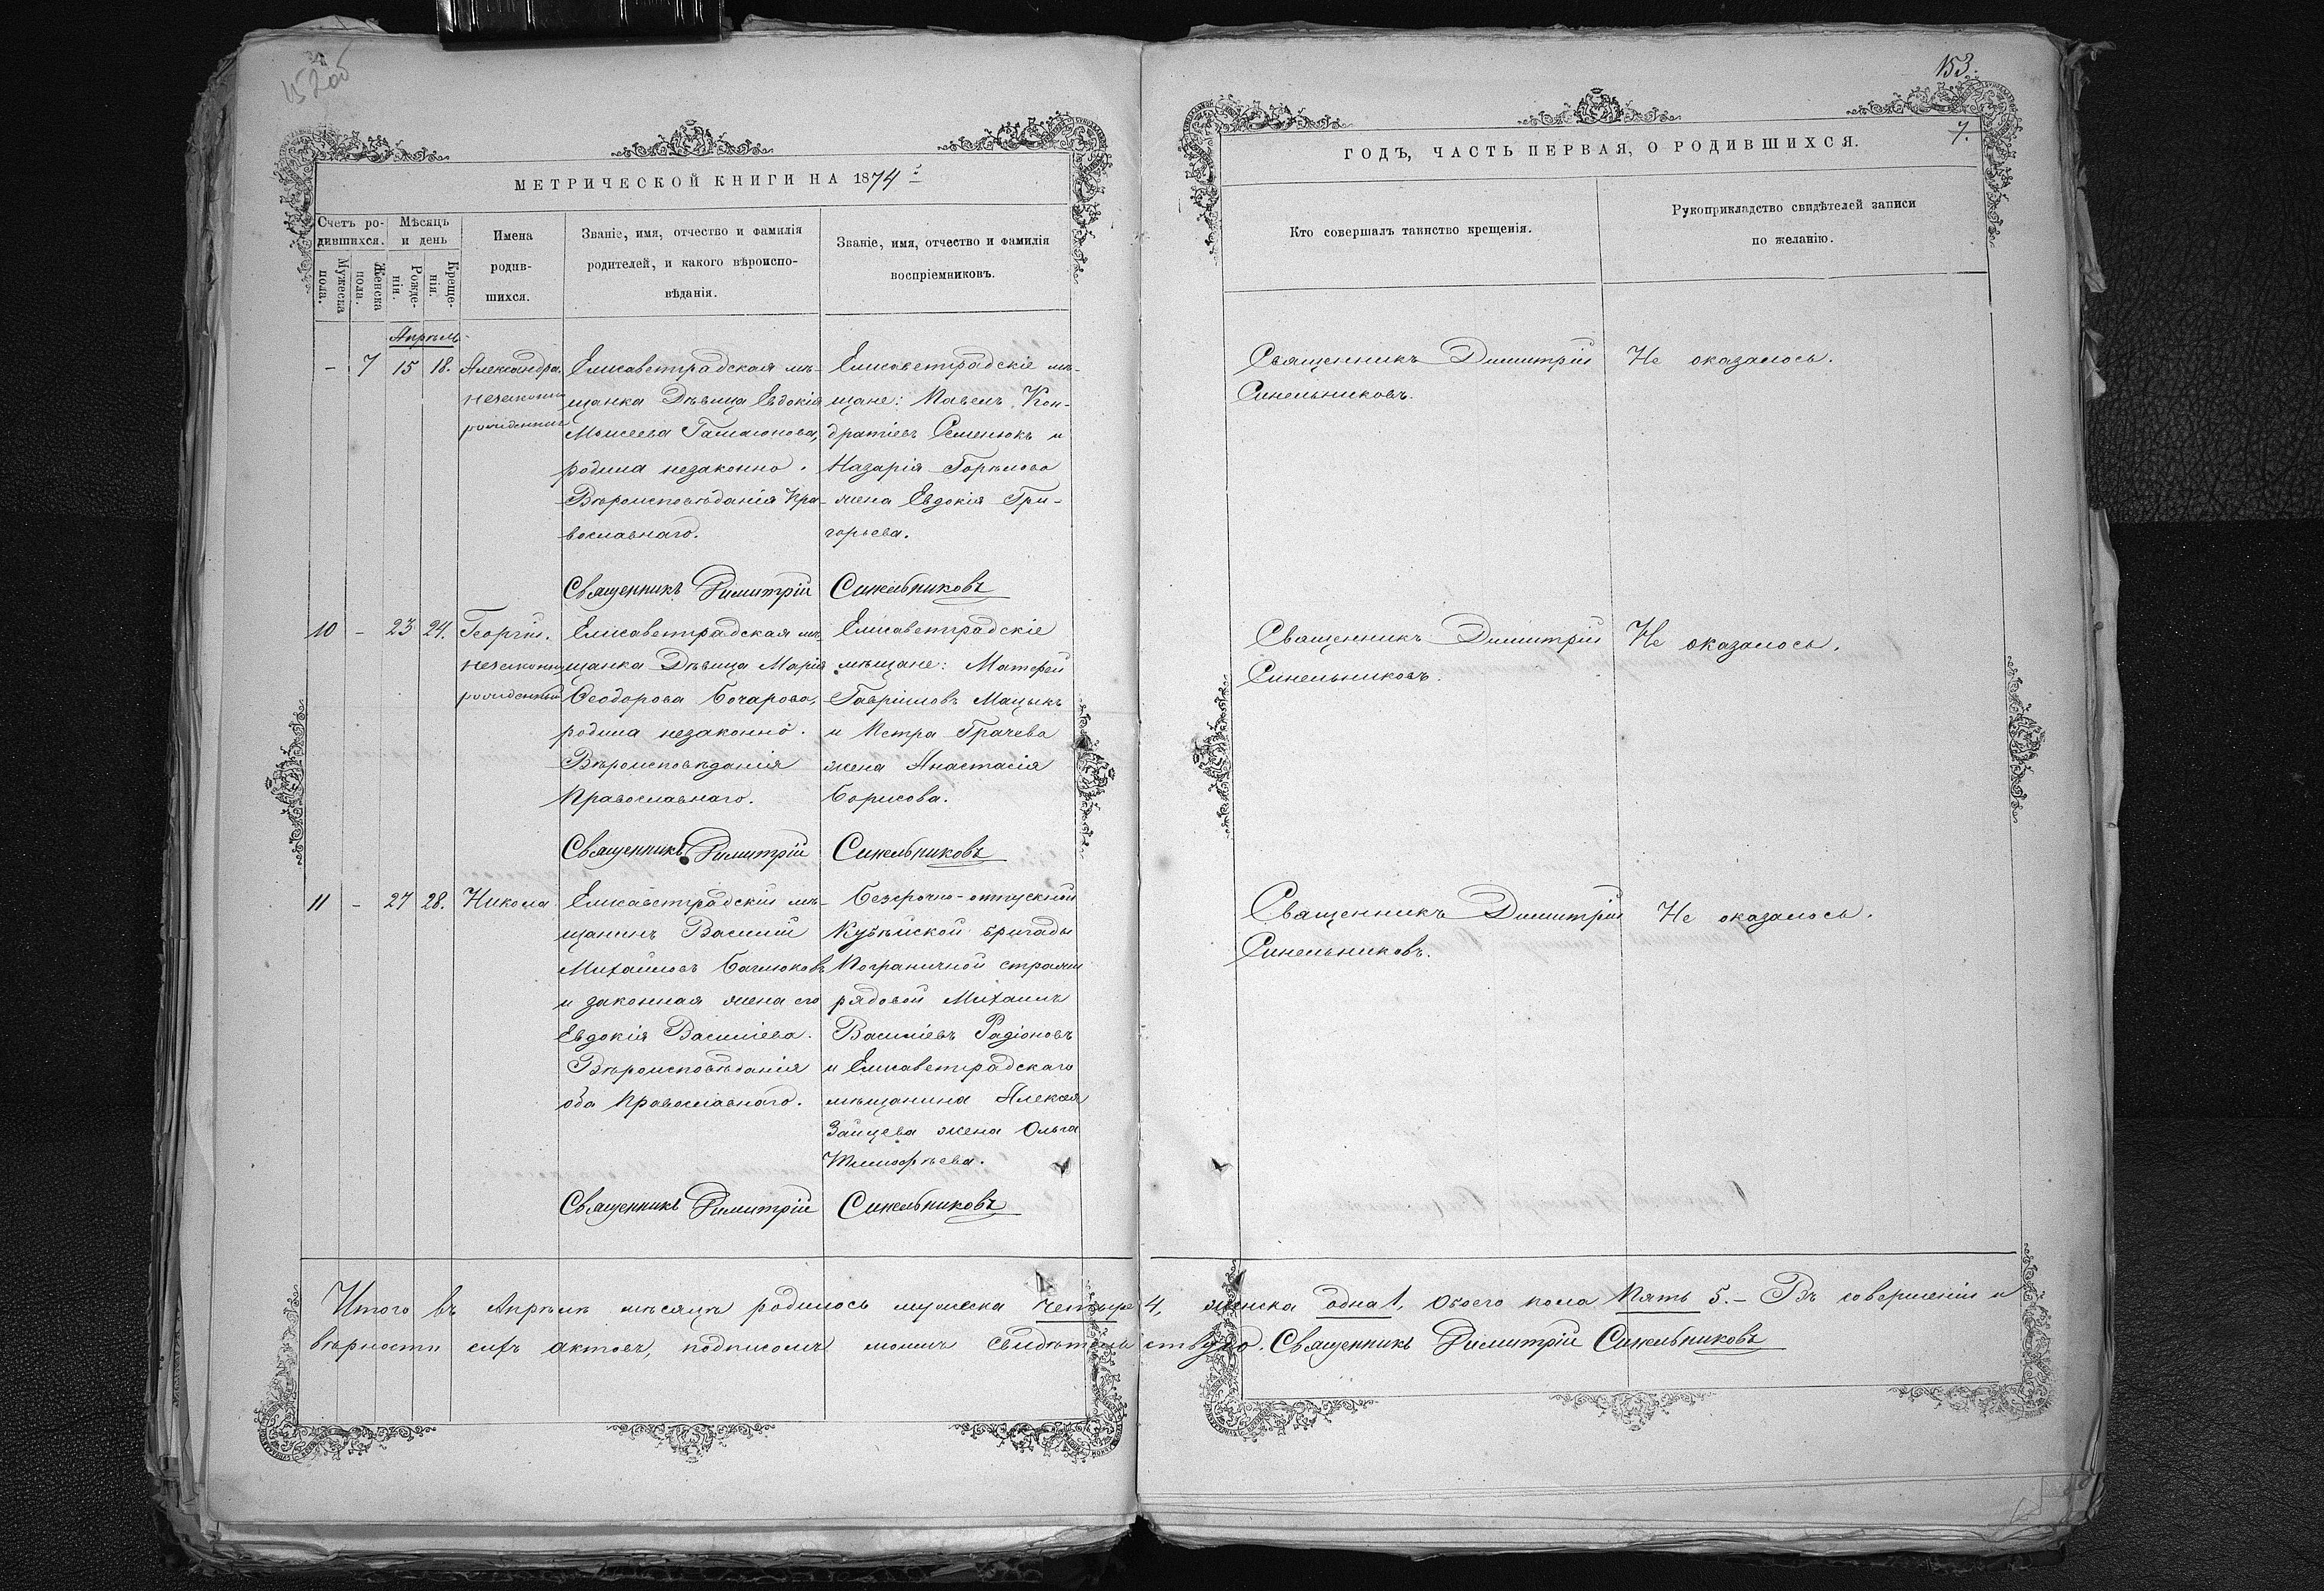 152об
153.
7.
МЕТРИЧЕСКОЙ КНИГИ НА 1874й
Счетъ ро-
дившихся.
Мужеска
пола.
Женска
пола.
Мѣсяцъ
и день
Рожде-
нія.
Креще-
нія.
Имена
родив-
шихся.
Званіе, имя, отчество и фамилія
родителей, и какого вѣроиспо-
вѣданія.
Званіе, имя, отчество и фамилія
воспріемниковъ.
Апрѣль
- 7 15 18. Александра
незаконно
рожденная
Елисаветградская мѣ-
щанка Дѣвица Евдокія
Моисеева
родила незаконно.
Вѣроисповѣданія Пра-
вославнаго.
Елисаветградскіе мѣ-
щане: Павелъ Кон-
дратіевъ Семенюкъ и
Назарія Горѣлова
жена Евдокія Гри-
горьева.
Священникъ Димитрій Синельниковъ
10 - 23 24. Георгій.
незаконно
рожденный
Елисаветградская мѣ
щанка Дѣвица Марія
Ѳеодорова Бочарова,
родила незаконно.
Вѣроисповѣданія
Православнаго.
Елисаветградскіе
мѣщане: Матѳей
Гавріиловъ Мацыкъ
и Петра Грачева
жена Анастасія
Борисова.
Священникъ Димитрій Синельниковъ
11 - 27 28. Никола
Елисаветградскій мѣ-
щанинъ Василій
Михайловъ Баглюковъ
и законная жена его
Евдокія Василіева.
Вѣроисповѣданія
оба Православнаго.
Безсрочно-отпускной
бригады
Пограничной стражи
рядовой Михаилъ
Василіевъ Радіоновъ
и Елисаветградскаго
мѣщанина Алексѣя
Зайцева жена Ольга
Тимофѣева.
Священникъ Димитрій Синельниковъ
ГОДЪ, ЧАСТЬ ПЕРВАЯ, О РОДИВШИХСЯ.
Кто совершалъ таинство крещенія.
Рукоприкладство свидѣтелей записи
по желанію.
Священникъ Димитрій
Синельниковъ.
Не оказалось.
Священникъ Димитрій
Синельниковъ.
Не оказалось.
Священникъ Димитрій
Синельниковъ.
Не оказалось.
Итого въ Апрѣлѣ мѣсяцѣ родилось мужеска четыре 4, женска одна 1, обоего пола Пять 5. - Въ совершеніи и
вѣрности сихъ актовъ, подписомъ моимъ свидѣтельствую. Священникъ Димитрій Синельниковъ